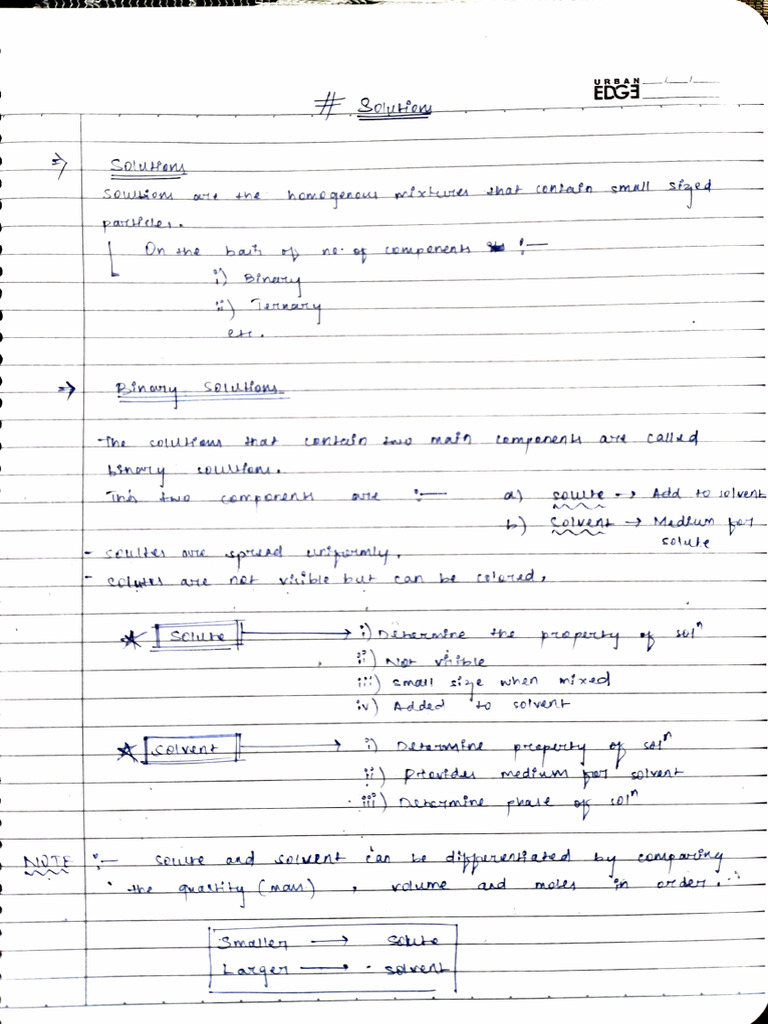 URBAN
EDGE
# Solutions
⇒ Solutions
Solutions are the homogenous mixtures that contain small sized
particles.
On the basis of no. of components :—
i) Binary
ii) Ternary
etc.
⇒ Binary Solutions
The solutions that contain two main components are called
binary solutions.
This two components are :— a) solute → Add to solvent
b) Solvent → Medium for
solute
- Solutes are spread uniformly.
- Solutes are not visible but can be colored.
★ Solute → i) Determine the property of solⁿ
ii) Not visible
iii) Small size when mixed
iv) Added to solvent
★ Solvent → i) Determine property of solⁿ
ii) Provides medium for solvent
iii) Determine phase of solⁿ
NOTE :— Solute and solvent can be differentiated by comparing
the quantity (mass) , volume and moles in order.
Smaller → solute
Larger → solvent